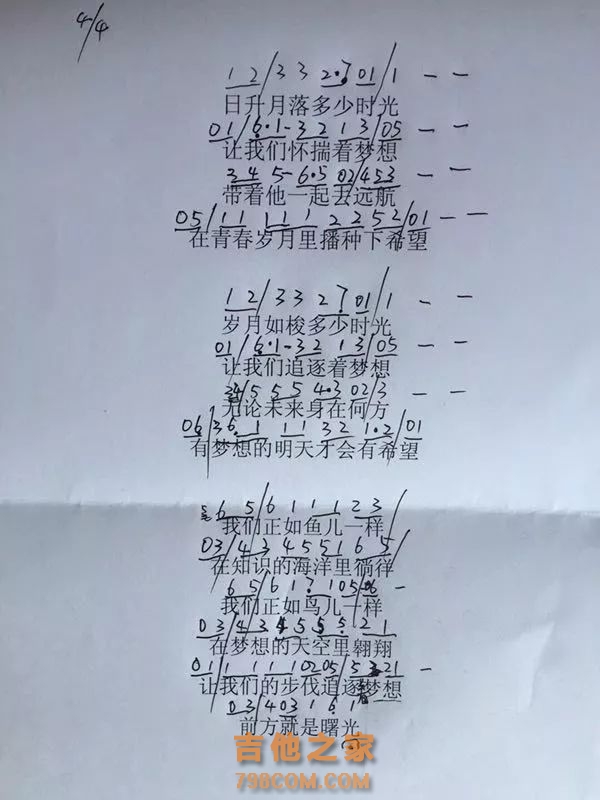 4/4
1 2/3 3 2·7 01/1 — —
日升月落多少时光
01/6·1-3 2 1 3/05 — —
让我们怀揣着梦想
3 4 5- 6·5 02/453 — —
带着他一起去远航
05/1 1 1 1 1 2 2 5 2/01 — —
在青春岁月里播种下希望
1 2/3 3 2 7 01/1 — —
岁月如梭多少时光
01/6·1-32 13/05 — —
让我们追逐着梦想
34 5 5 5 4·3 02/3 — —
无论未来身在何方
06/36 1 11 32 1·2/01
有梦想的明天才会有希望
6 5/6 1 1 1 2 3/
我们正如鱼儿一样
03/43 45 51 6 5/
在知识的海洋里徜徉
6 5/6 1 7 105/6 —
我们正如鸟儿一样
03/43 45 5 5 2 1
在梦想的天空里翱翔
01/1 1 1 1 0205/5 21 —
让我们的步伐追逐着梦想
03/403 1 6 1
前方就是曙光
吉他之家
798COM.COM